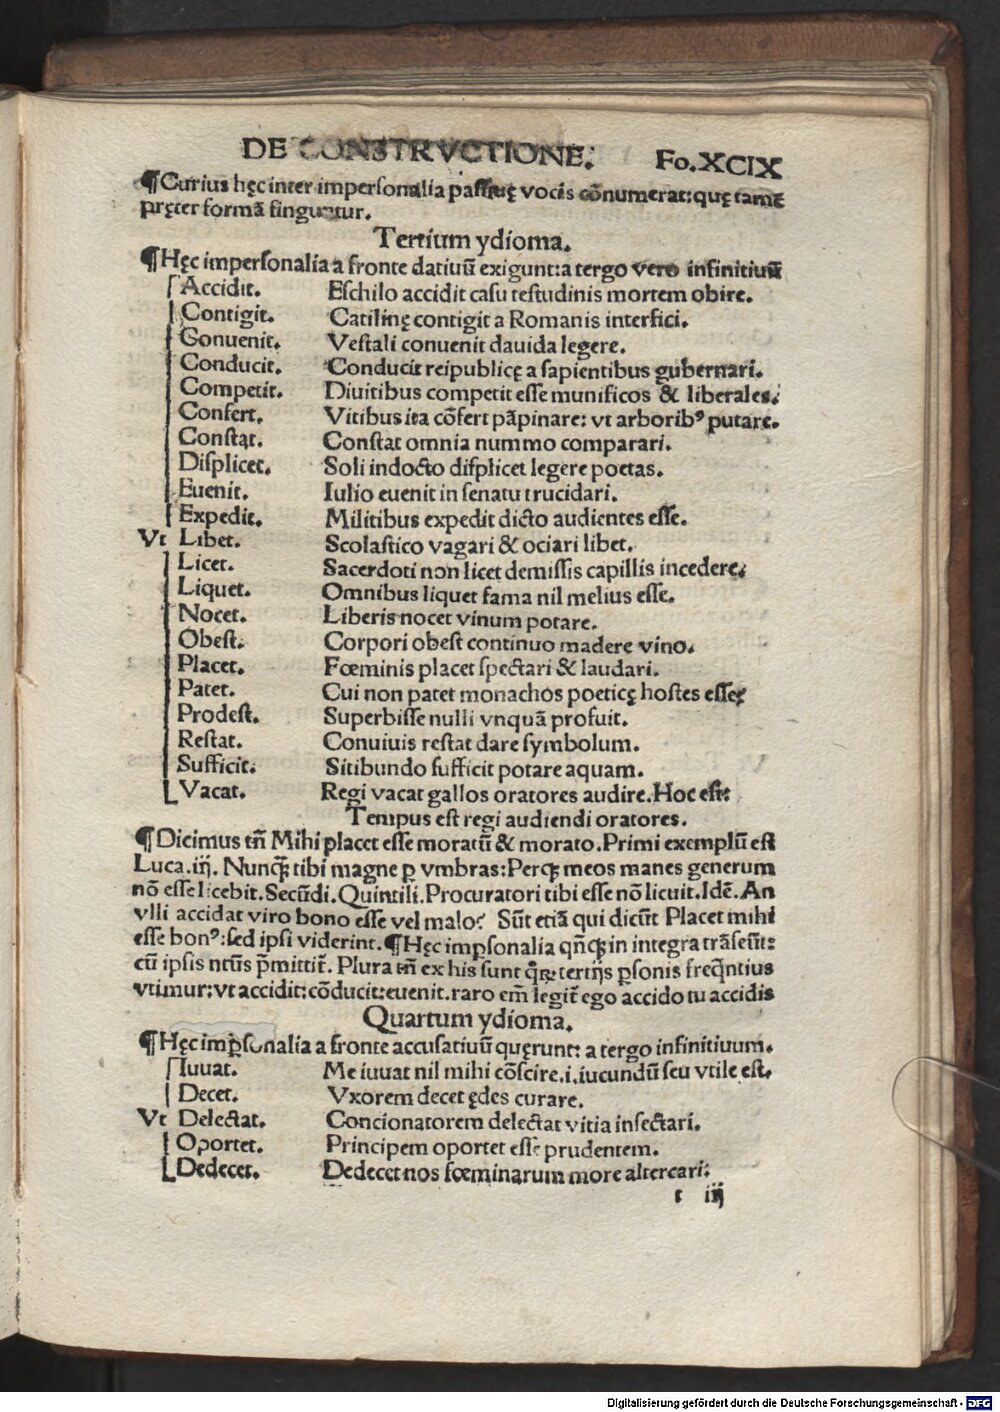 DE CONSTRVCTIONE. Fo.XCIX
¶Curius hęc inter impersonalia passiuę vocis cōnumerat:quę tamē
pręter formā finguntur.
Tertium ydioma.
¶Hęc impersonalia a fronte datiuū exigunt:a tergo vero infinitiuū
Accidit. Eschilo accidit casu testudinis mortem obire.
Contigit. Catilinę contigit a Romanis interfici.
Conuenit. Vestali conuenit dauida legere.
Conducit. Conducit reipublicę a sapientibus gubernari.
Competit. Diuitibus competit esse munificos & liberales.
Confert. Vitibus ita cōfert pāpinare: vt arboribꝰ putare.
Constat. Constat omnia nummo comparari.
Displicet. Soli indocto displicet legere poetas.
Euenit. Iulio euenit in senatu trucidari.
Expedit. Militibus expedit dicto audientes esse.
Vt Libet. Scolastico vagari & ociari libet.
Licet. Sacerdoti non licet demissis capillis incedere.
Liquet. Omnibus liquet fama nil melius esse.
Nocet. Liberis nocet vinum potare.
Obest. Corpori obest continuo madere vino.
Placet. Fœminis placet spectari & laudari.
Patet. Cui non patet monachos poeticę hostes esse?
Prodest. Superbisse nulli vnquā profuit.
Restat. Conuiuis restat dare symbolum.
Sufficit. Sitibundo sufficit potare aquam.
Vacat. Regi vacat gallos oratores audire.Hoc est:
Tempus est regi audiendi oratores.
¶Dicimus tn̄ Mihi placet esse moratū & morato.Primi exemplū est
Luca.iij. Nunꝙ̄ tibi magne ꝑ vmbras:Perꝙ meos manes generum
nō esse licebit.Secūdi.Quintili.Procuratori tibi esse nō licuit.Idē.An
vlli accidat viro bono esse vel malo? Sūt etiā qui dicūt Placet mihi
esse bonꝰ:sed ipsi viderint.¶Hęc imꝑsonalia qn̄ꝙ in integra trāseūt:
cū ipsis ntūs p̄mittit̄. Plura tn̄ ex his sunt quibus tertijs ꝑsonis freq̄ntius
vtimur:vt accidit:cōducit:euenit.raro em̄ legit̄ ego accido tu accidis
Quartum ydioma.
¶Hęc imꝑsonalia a fronte accusatiuū quęrunt: a tergo infinitiuum.
Iuuat. Me iuuat nil mihi cōscire.i.iucundū seu vtile est.
Decet. Vxorem decet ędes curare.
Vt Delectat. Concionatorem delectat vitia insectari.
Oportet. Principem oportet esse prudentem.
Dedecet. Dedecet nos fœminarum more altercari:
t iij
Digitalisierung gefördert durch die Deutsche Forschungsgemeinschaft - DFG